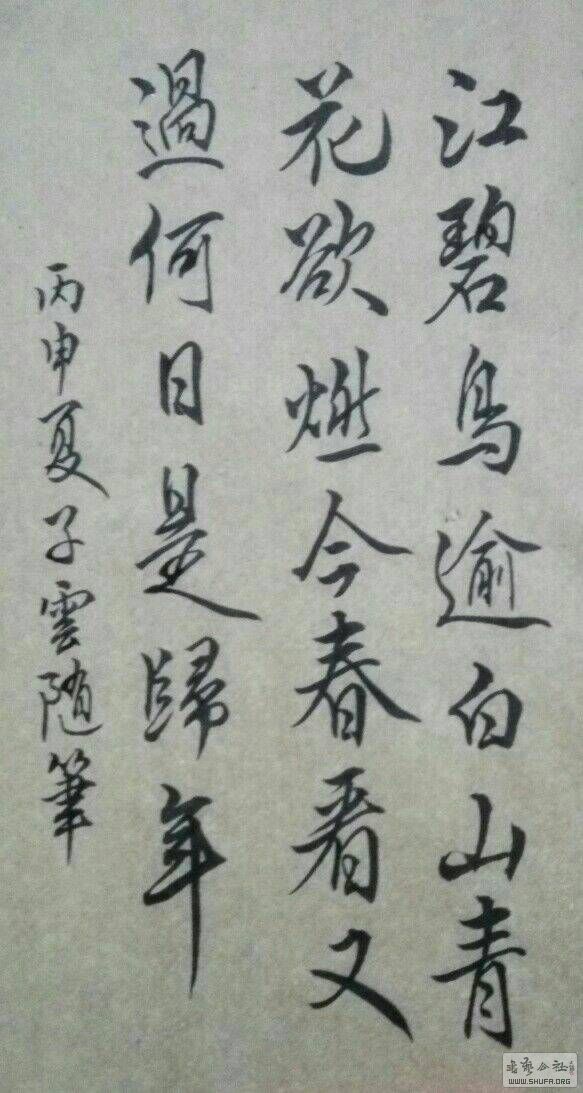 江碧鳥逾白山青
花欲燃今春看又
過何日是歸年
丙申夏子雲随筆
WWW.SHUFA.ORG